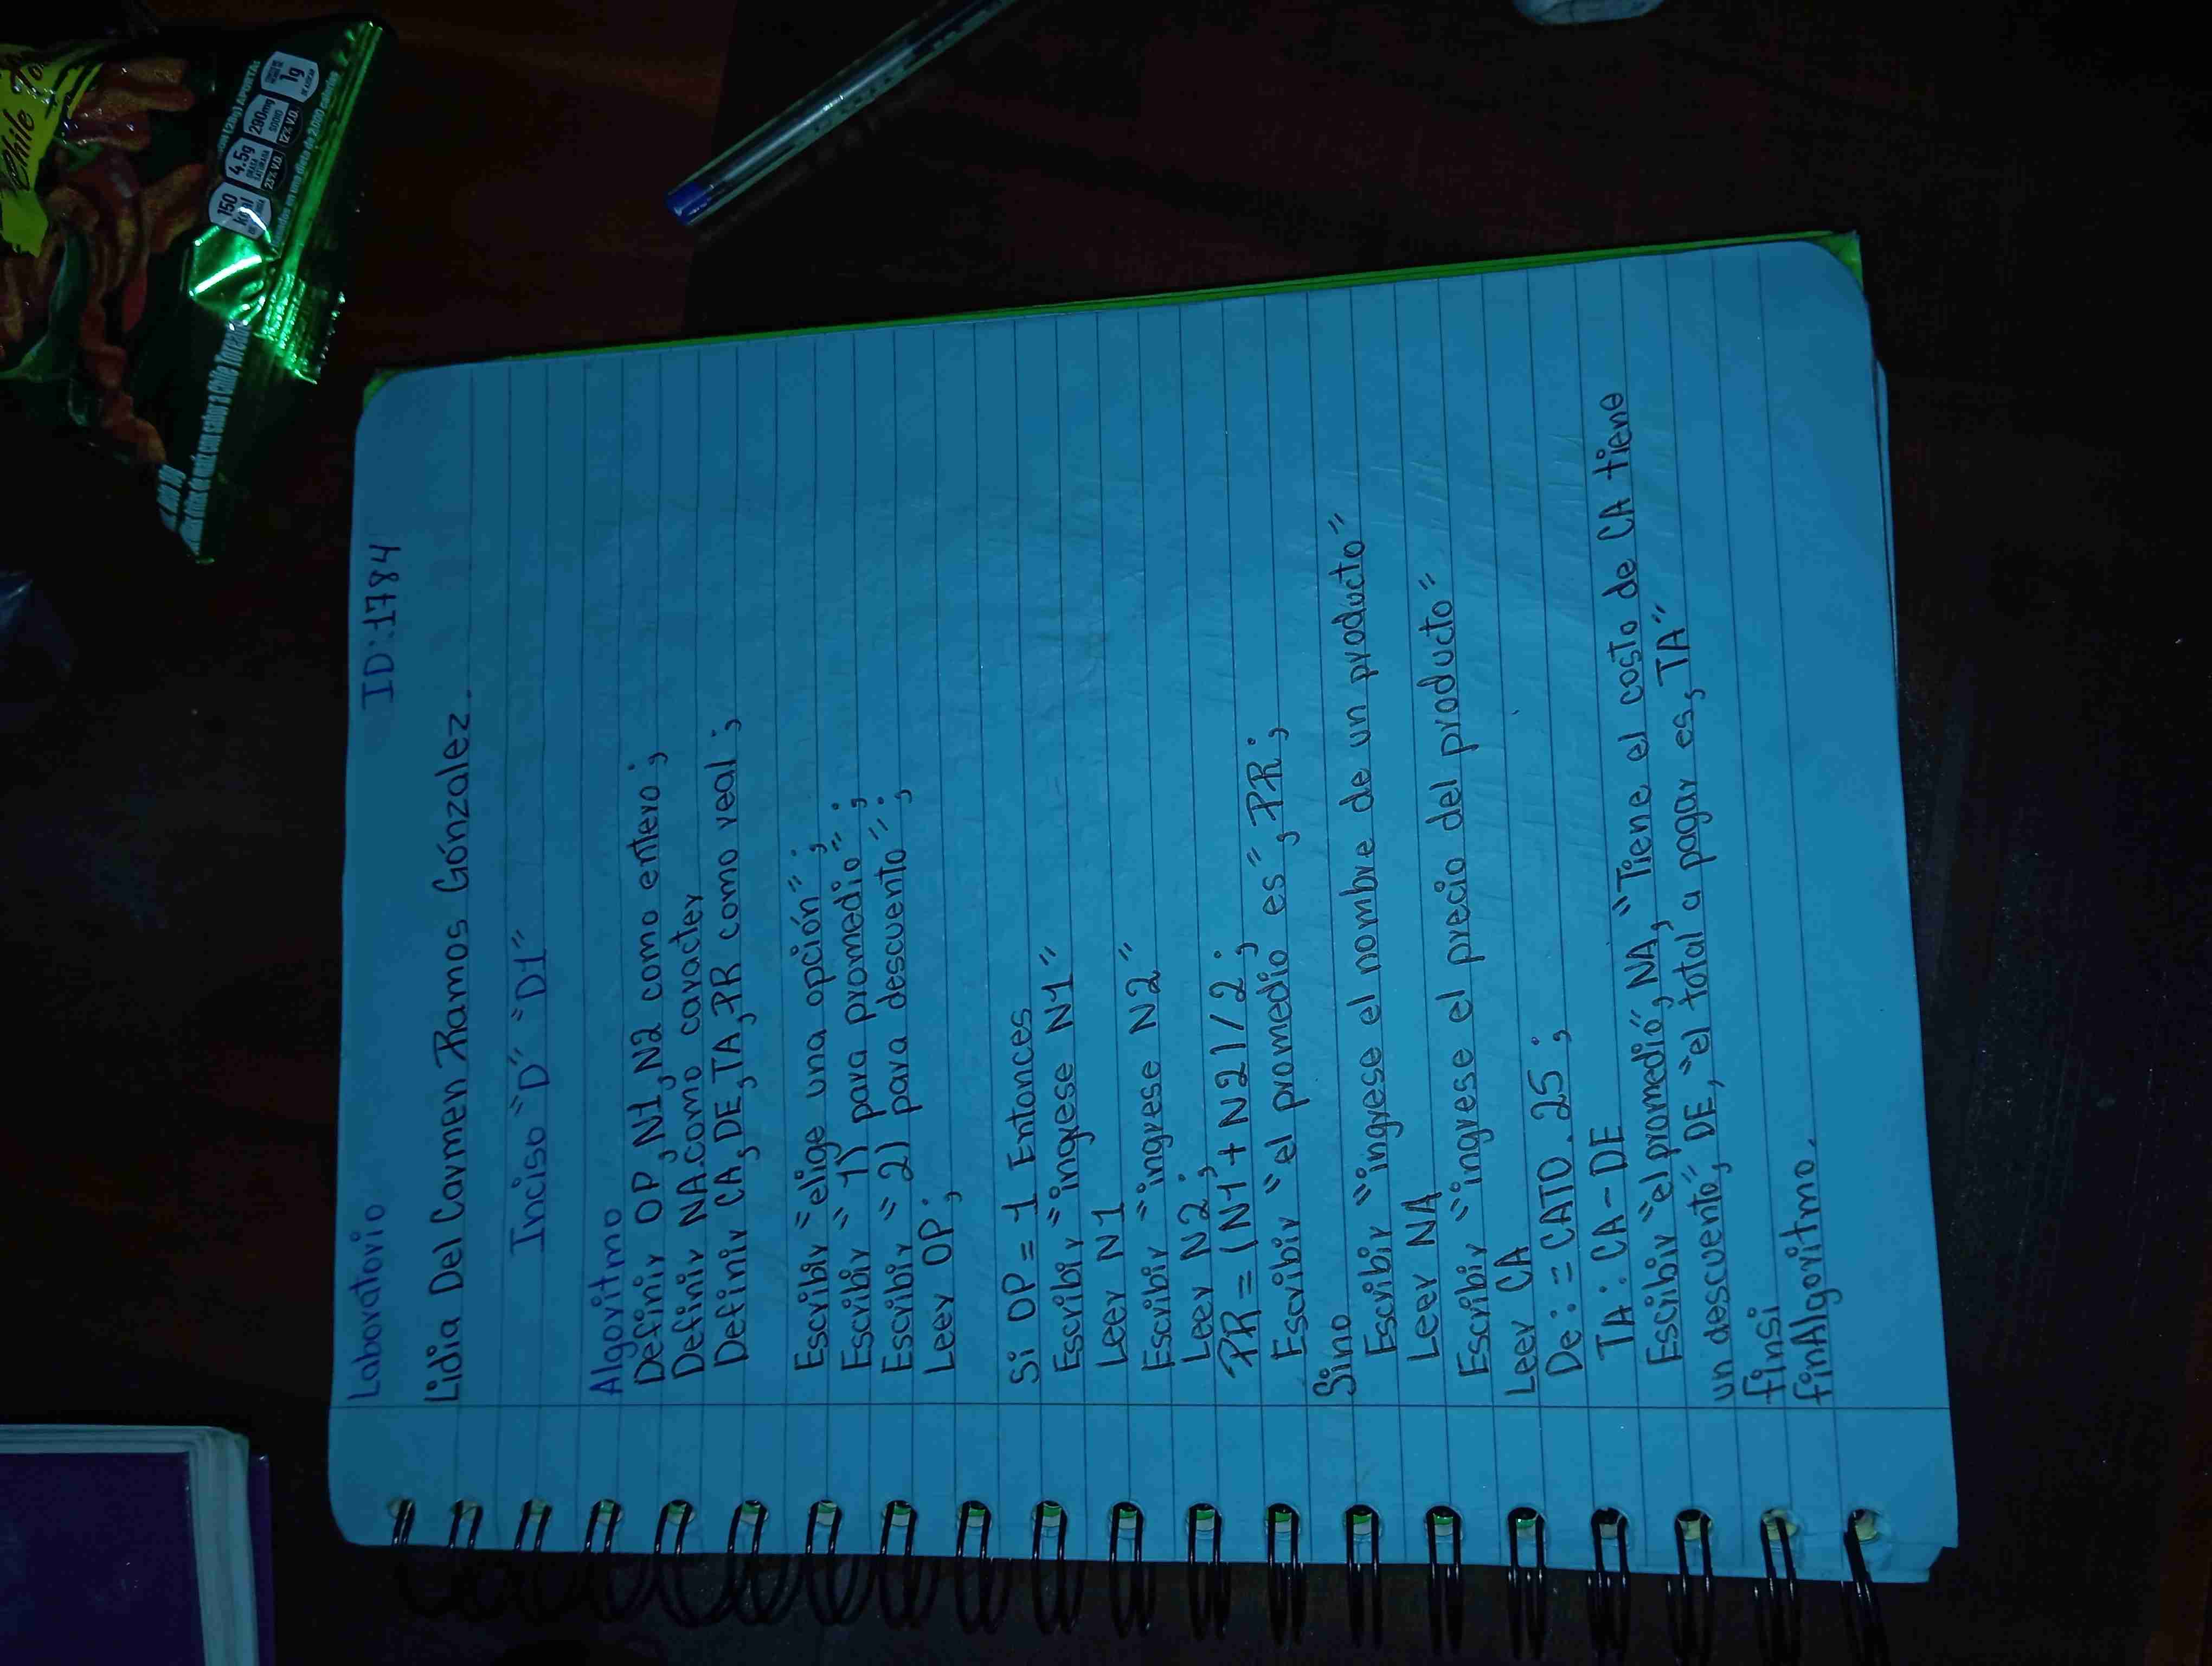 Laboratorio ID:1784
Lidia Del Carmen Ramos Gónzalez.
Inciso "D" "D1"
Algoritmo
Definir OP, N1, N2 como entero;
Definir NA como caracter
Definir CA, DE, TA, PR como real;
Escribir "elige una opción";
Escribir "1) para promedio";
Escribir "2) para descuento";
Leer OP;
Si OP = 1 Entonces
Escribir "ingrese N1"
Leer N1
Escribir "ingrese N2"
Leer N2;
PR = (N1 + N2)/2;
Escribir "el promedio es", PR;
Sino
Escribir "ingrese el nombre de un producto"
Leer NA
Escribir "ingrese el precio del producto"
Leer CA
De: = CATO.25;
TA: CA-DE
Escribir "el promedio", NA, "Tiene el costo de CA tiene
un descuento", DE, "el total a pagar es, TA"
finsi
finAlgoritmo.
Chile To
150 kcal
4.5g
23% V.D.
290mg
SODIO
12% V.D.
1g